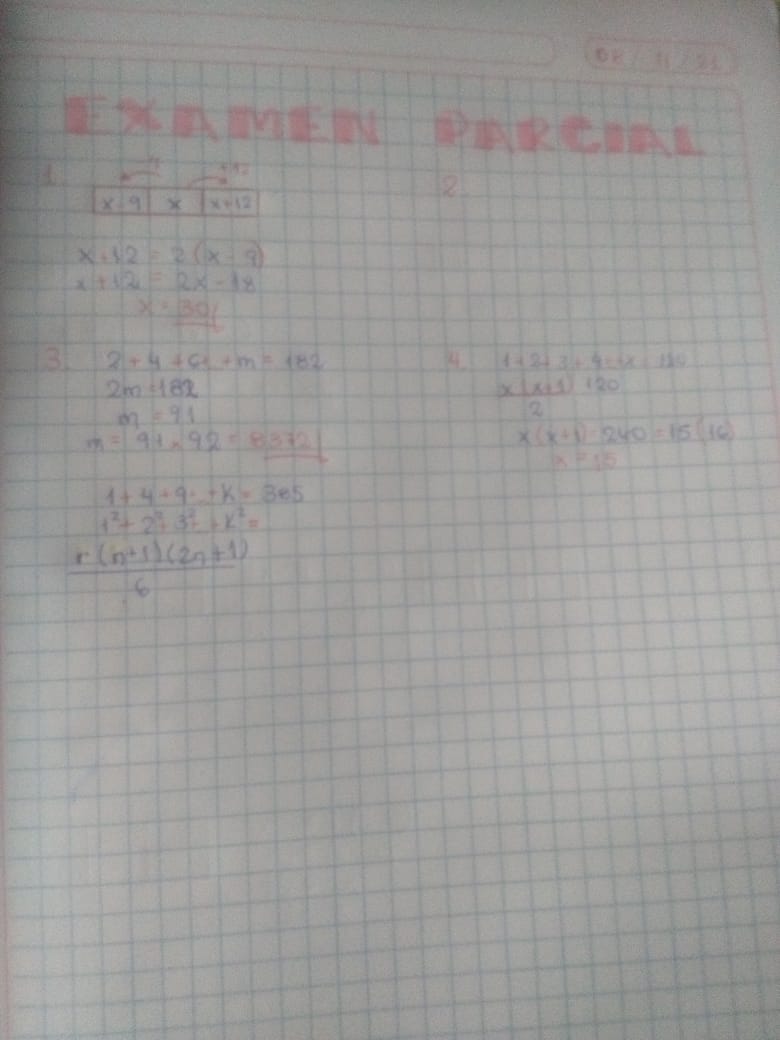 08/11/21
EXAMEN PARCIAL
1.
x-9 x x+12
x+12 = 2(x-9)
x+12 = 2x-18
x = 30
2
3. 2+4+6+ +m= 182
2m=182
m = 91
m= 91 x 92 = 8372
1+4+9 +K= 385
1²+2²+3²+ +K²=
(n+1)(2n+1)
6
4. 1+2+3+4 +x 120
x(x+1) 120
2
x(x+1) 240 = 15(16)
x = 15